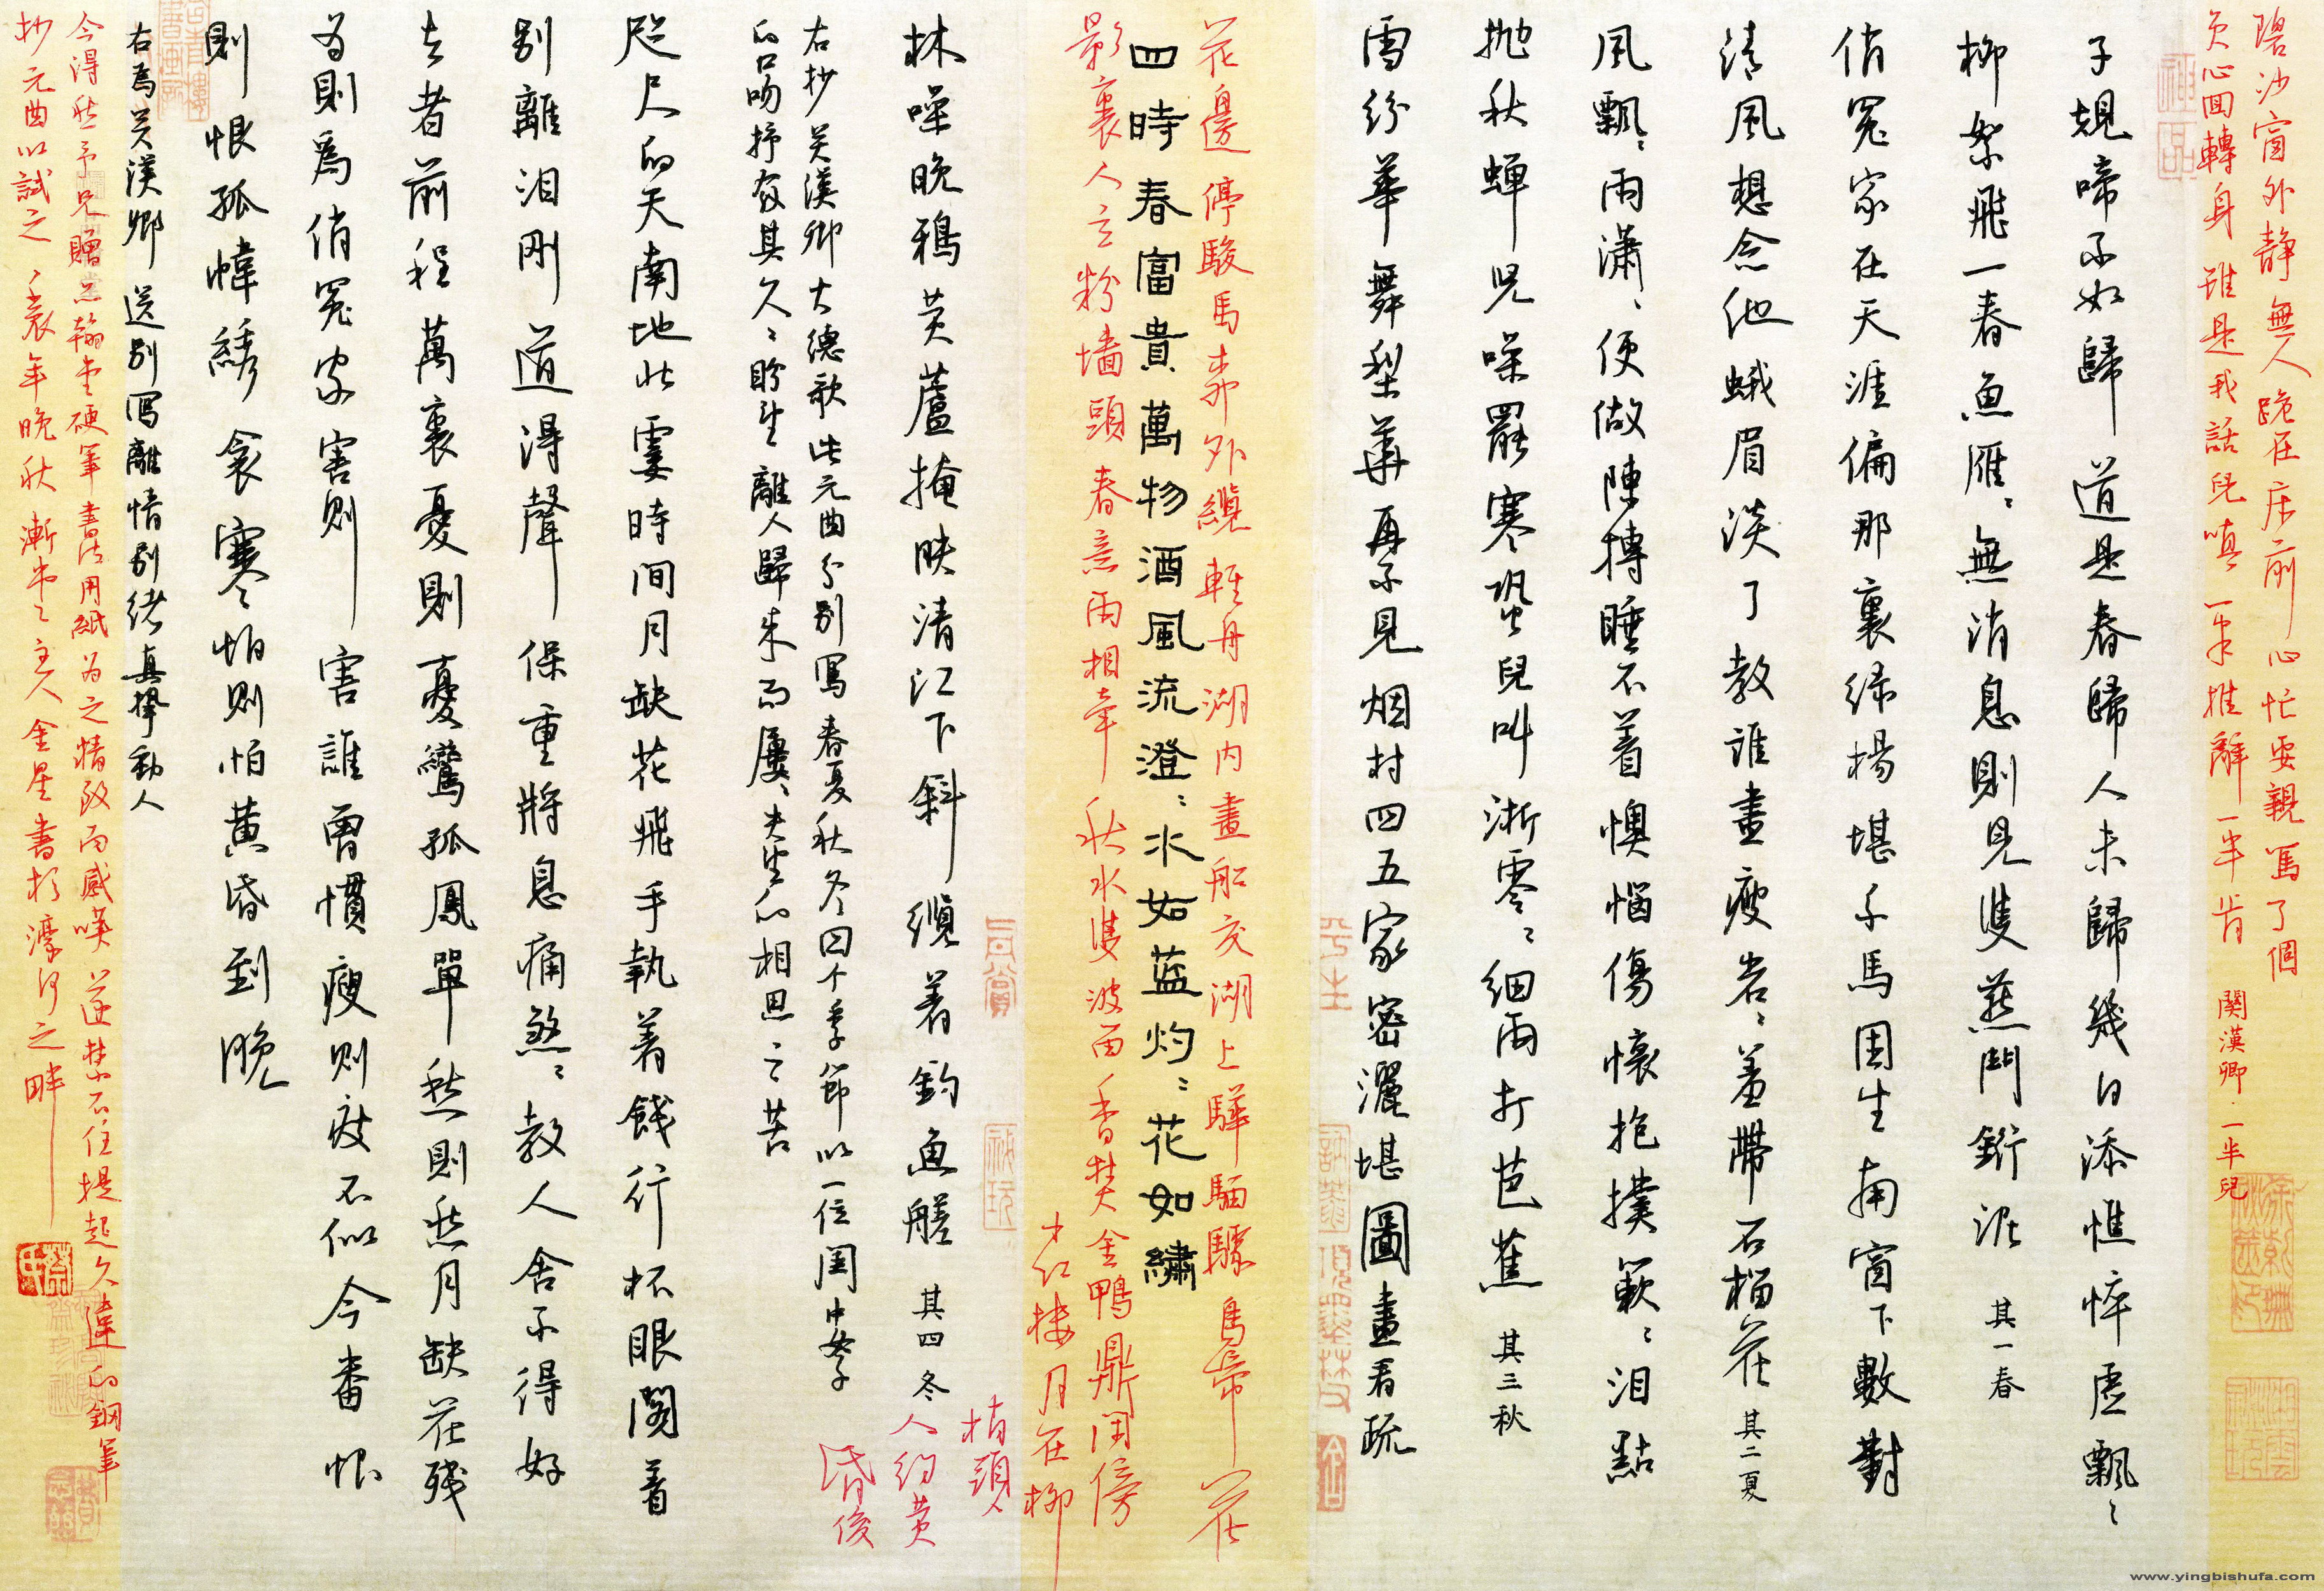 碧沙窗外靜無人跪在床前心忙要親罵了個
负心回轉身雖是我話兒嗔一半推辭一半肯 關漢卿·一半兒
子規啼不如歸道是春歸人未歸幾日添憔悴虛飄〻
柳絮飛一春魚雁〻無消息則見雙燕鬥銜泥 其一春
俏冤家在天涯偏那裏綠楊堪繫馬困坐南窗下數對
清風想念他蛾眉淡了教誰畫瘦岩〻羞帶石榴花 其二夏
风飄〻雨瀟〻便做陳摶睡不着懊惱傷懷抱撲簌〻泪點
拋秋蟬兒噪罷寒蛩兒叫淅零〻細雨打芭蕉 其三秋
雪紛華舞梨花再不見烟村四五家密灑堪圖畫看疏
花邊停駿馬柳外纜輕舟湖内畫船交湖上驊騮驟鳥啼花
四時春富貴萬物酒風流澄〻水如藍灼〻花如繡
影裏人立粉墙頭春意兩相牽秋水雙波西香焚金鴨鼎閑傍
小红樓月在柳
梢頭人
人约黄
昏後
林噪晚鴉黃蘆掩映清江下斜纜着釣魚艖 其四冬
右抄关漢卿大德歌此元曲分别寫春夏秋冬四个季節以一位閨中女子
的口吻抒发其久〻盼望離人歸来而屢〻失望的相思之苦
咫尺的天南地北霎時间月缺花飛手執着餞行杯眼閣着
别離泪刚道得聲保重將息痛煞〻教人舍不得好
去者前程萬裏憂則憂鸞孤鳳單愁則愁月缺花残
为則爲俏冤家害則害誰曾慣瘦则瘦不似今番恨
則恨孤幃綉衾寒怕则怕黄昏到晚
右為关漢卿送别寫離情别绪真摯動人
今得愁予兄贈三翰堂硬筆書法用紙为之情致而感嘆遂禁不住提起久違的鋼筆
抄元曲以試之 襄年晚秋漸书主人金星書於濠河之畔
www.yingbishufa.com